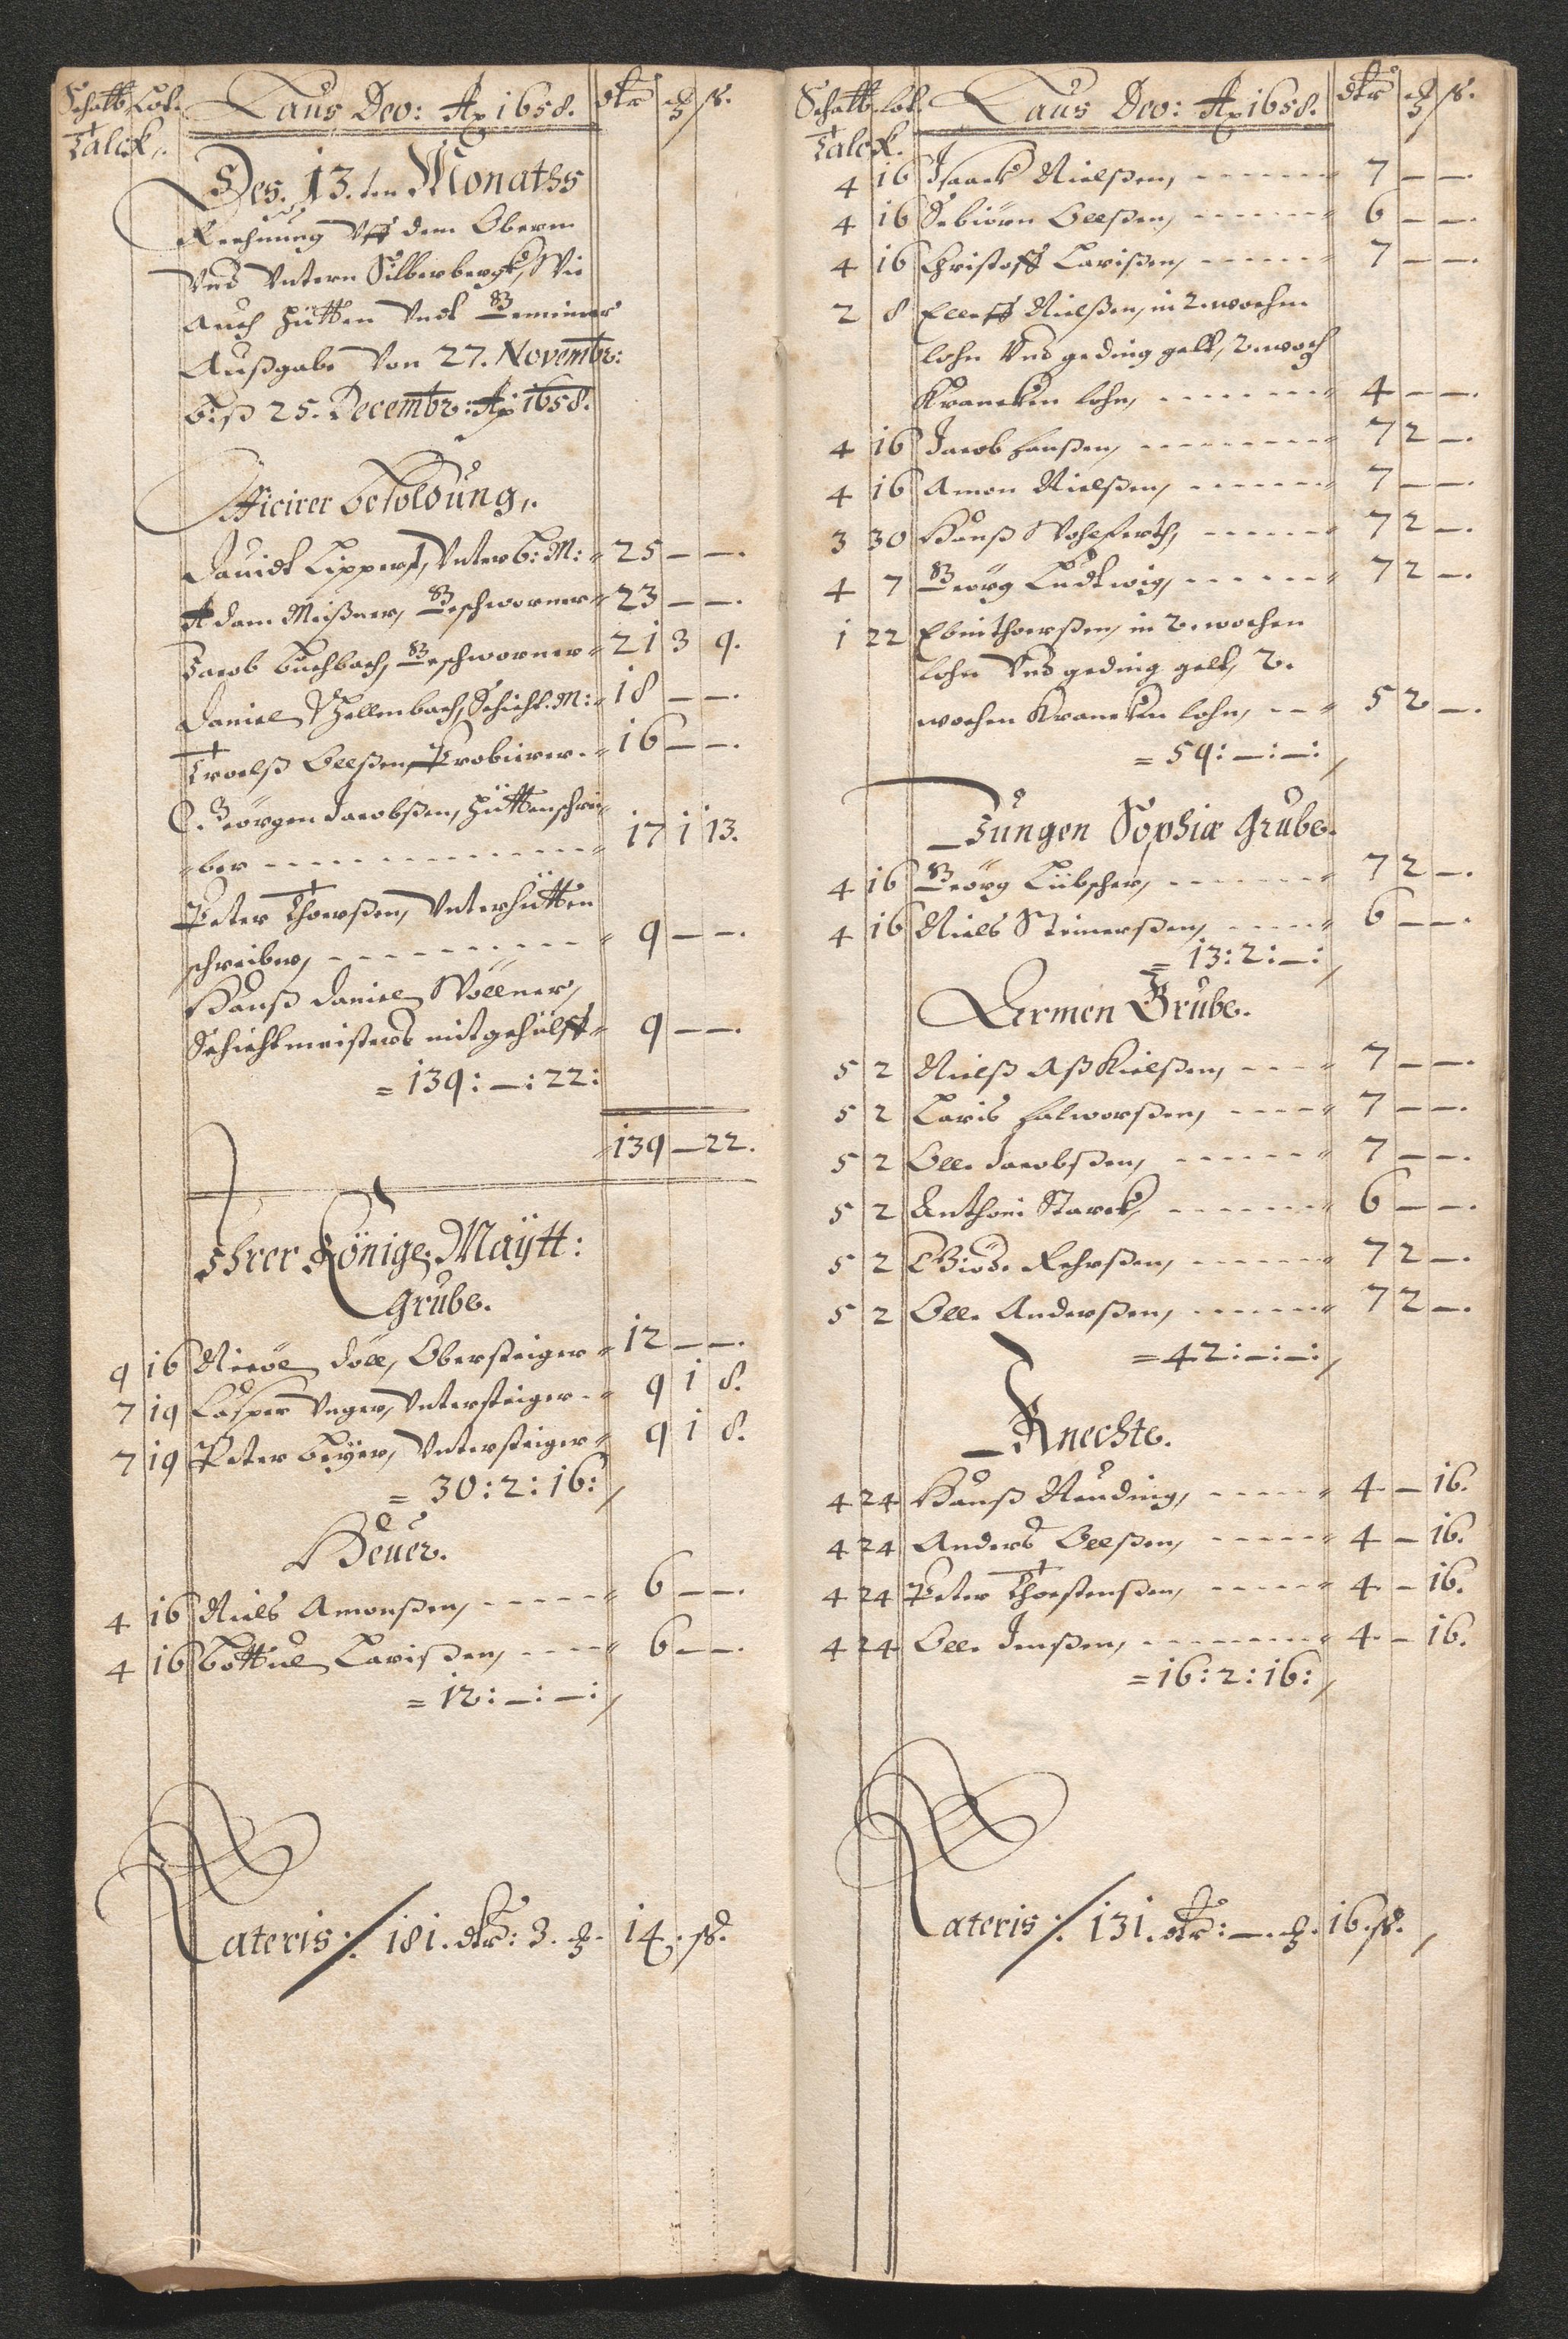 Schatb. Lot. Laus Deo: Ao 1658. dlr ₰ ß.
Talck.
Des 13.ten Monaths
Rechnung Vff dem Obern
Vnd Vntern Silberbergk, Wie
Auch Hütten Undt Gemeiner
Außgabe Von 27. Novembr:
biß 25. Decembr: Ao 1658.
Officirer besoldung.
Dauidt Lippert, Vnter b: M: 25 — —.
Adam Meißner, Geschworner 23 — —.
Jacob Buchbach, Geschworner 21 3 9.
Daniel Schellenbach, Schicht. M: 18 — —.
Troelß Olleßen, Probierer. 16 — —.
Georgen Jacobßen, Hüttenschrei-
ber 17 1 13.
Peter Thoerßen, Vnterhütten
schreiber, 9 — —.
Hanß Daniel Wöllner,
Schichtmeisters mitgehülff 9 — —.
= 139: —: 22:
139 — 22.
Ihrer Königl: Maÿtt:
Grube.
9 16 Nicol Döll, Obersteiger 12 — —.
7 19 Casper Unger, Vntersteiger 9 1 8.
7 19 Peter Beÿer, Vntersteiger 9 1 8.
= 30: 2: 16:
Heuer.
4 16 Niels Amonßen, 6 — —.
4 16 Bottul Larißen, 6 — —.
= 12: —: —:
Lateris: 181. dlr: 3. ₰. 14. ß.
Schatb. Lot. Laus Deo: Ao 1658. dlr ₰ ß.
Talck.
4 16 Isaack Nielßen, 7 — —.
4 16 Sebiörn Olleßen, 6 — —.
4 16 Christoff Larißen, 7 — —.
2 8 Elleff Nielßen, in 2. wochen
lohn Und geding gelt, 2. woch
Krancken lohn, 4 — —.
4 16 Jacob Hanßen, 7 2 —.
4 16 Amon Nielßen, 7 — —.
3 30 Hanß Wohlferth, 7 2 —.
4 7 Georg Ludtwig, 7 2 —.
1 22 Ebinthoerßen, in 2. wochen
lohn Und geding gelt, 2.
wochen Krancken lohn, 5 2 —.
= 59: —: —:
Jungen Sophiæ Grube.
4 16 Georg Lübscher, 7 2 —.
4 16 Niels Steinerßen, 6 — —.
= 13: 2: —:
Armen Grube.
5 2 Nielß Aßkielßen, 7 — —.
5 2 Laris Halworßen, 7 — —.
5 2 Olle Jacobßen, 7 — —.
5 2 Anthoni Starck, 6 — —.
5 2 Giöd. Rehrßen, 7 2 —.
5 2 Olle Anderßen, 7 2 —.
= 42: —: —:
Knechte.
4 24 Hanß Reuding, 4 — 16.
4 24 Anders Olleßen, 4 — 16.
4 24 Peter Thorstenßen, 4 — 16.
4 24 Olle Jenßen, 4 — 16.
= 16: 2: 16:
Lateris: 131. dlr: —. ₰. 16. ß.